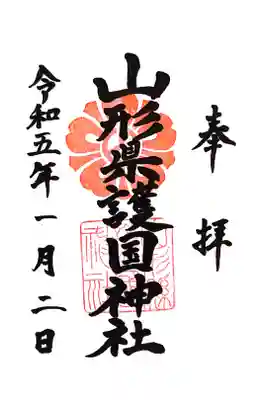 奉拝
山形県護国神社
令和五年一月二日